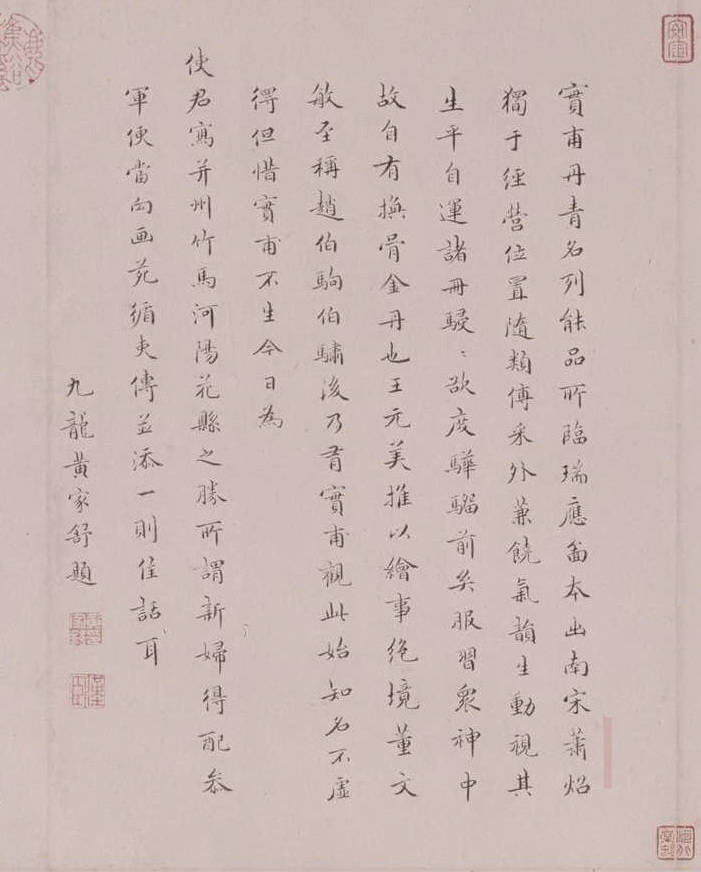 實甫丹青名列能品所臨瑞應啚本出南宋蕭炤
獨于經營位置隨類傅采外兼饒氣韻生動視其
生平自運諸冊駸〻欲度驊騮前矣服習衆神中
故自有換骨金丹也王元美推以繪事絶境董文
敏至稱趙伯駒伯驌後乃有實甫觀此始知名不虛
得但惜實甫不生今日為
使君寫并州竹馬河陽花縣之勝所謂新婦得配叅
軍便當向画苑循吏傳並添一則佳話耳
九龍黃家舒題